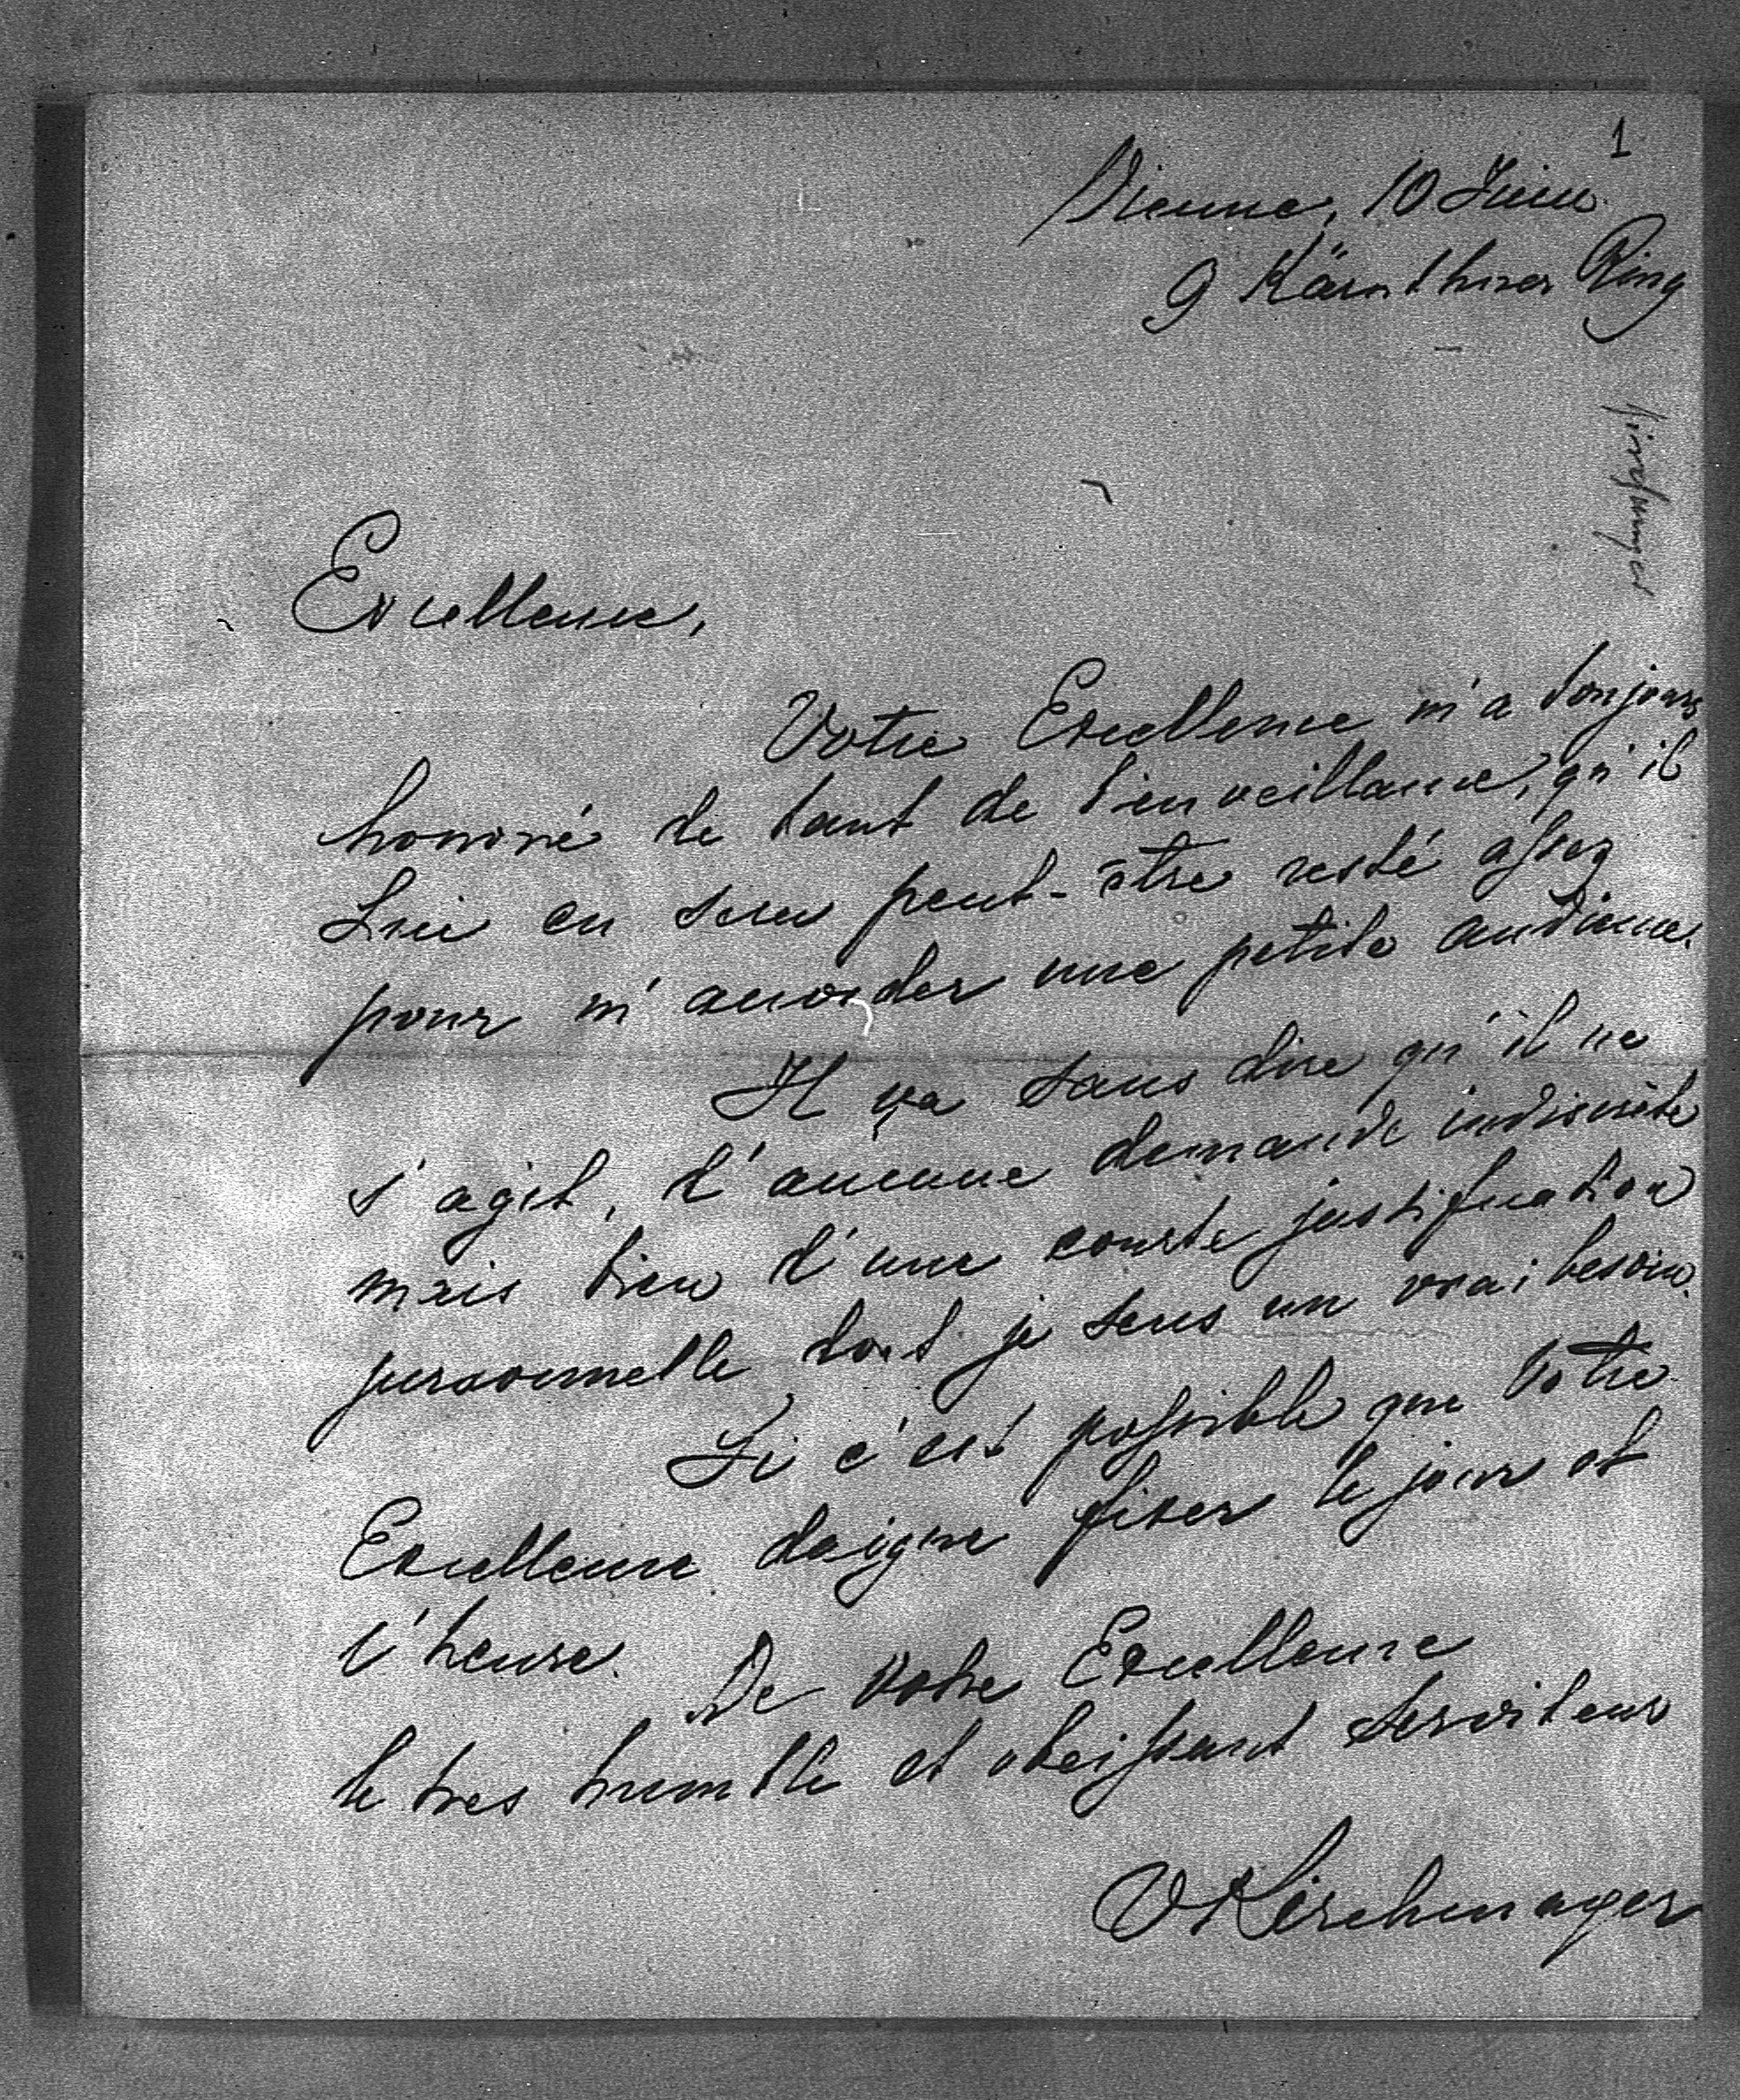 1
Vienne, 10 Juin
9 Kärnthner Ring
Excellence,
Votre Excellence m'a toujours
honoré de tant de bienveillance, qu'il
Lui en sera peut-être resté assez
pour m'accorder une petite audience.
Il va sans dire qu'il ne
s'agit, d'aucune demande indiscrète
mais bien d'une courte justification
personnelle dont je sens un vrai besoin.
Si c'est possible que Votre
Excellence daigne fixer le jour et
l'heure.
De Votre Excellence
le tres humble et obeissant serviteur
VKirchmayer